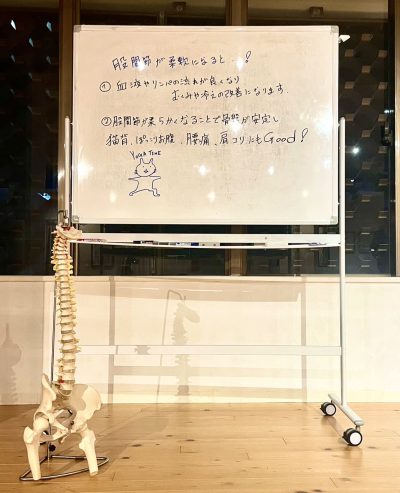 股関節が柔軟になると…!
① 血液やリンパの流れが良くなり
むくみや冷えの改善になります
② 股関節が柔らかくなることで骨盤が安定し
猫背、ぽっこりお腹、腰痛、肩コリにもGood!
YOGA TIME